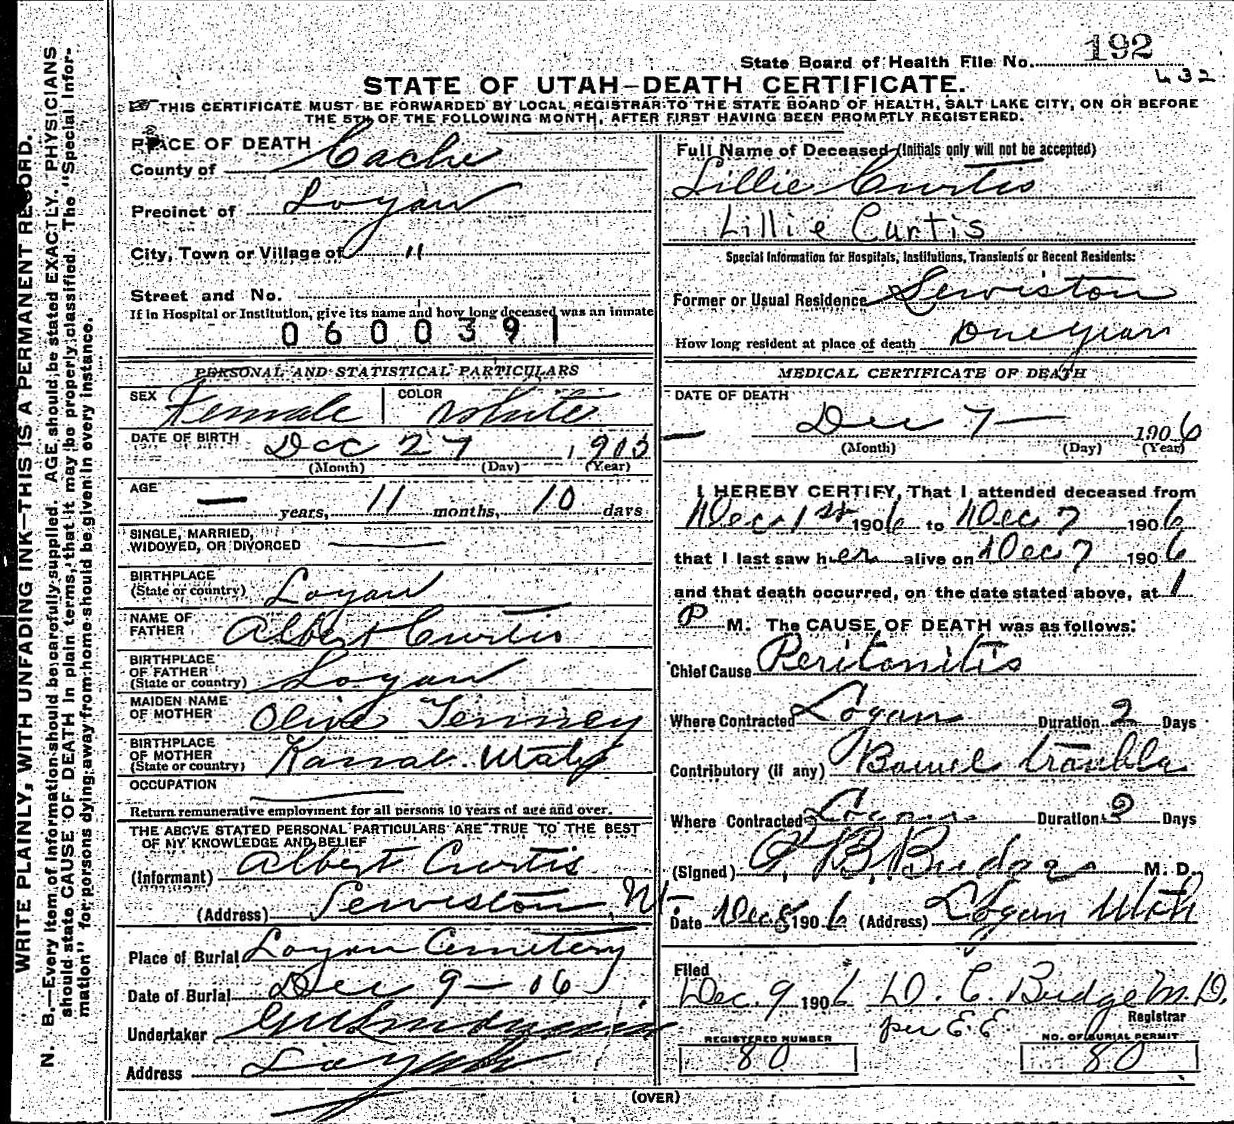 192
State Board of Health File No.
632
STATE OF UTAH—DEATH CERTIFICATE.
THIS CERTIFICATE MUST BE FORWARDED BY LOCAL REGISTRAR TO THE STATE BOARD OF HEALTH, SALT LAKE CITY, ON OR BEFORE
THE 5TH OF THE FOLLOWING MONTH, AFTER FIRST HAVING BEEN PROMPTLY REGISTERED.
PLACE OF DEATH
County of Cache
Precinct of Logan
City, Town or Village of "
Street and No.
If in Hospital or Institution, give its name and how long deceased was an inmate
0600391
PERSONAL AND STATISTICAL PARTICULARS
SEX Female COLOR White
DATE OF BIRTH Dec 27, 1905
(Month) (Day) (Year)
AGE — years, 11 months, 10 days
SINGLE, MARRIED,
WIDOWED, OR DIVORCED
BIRTHPLACE
(State or country) Logan
NAME OF
FATHER Albert Curtis
BIRTHPLACE
OF FATHER
(State or country) Logan
MAIDEN NAME
OF MOTHER Olive Tenney
BIRTHPLACE
OF MOTHER
(State or country) Kanab. Utah
OCCUPATION
Return remunerative employment for all persons 10 years of age and over.
THE ABOVE STATED PERSONAL PARTICULARS ARE TRUE TO THE BEST
OF MY KNOWLEDGE AND BELIEF
(Informant) Albert Curtis
(Address) Lewiston, Ut.
Place of Burial Logan Cemetery
Date of Burial Dec 9 - 06
Undertaker
Address Logan
Full Name of Deceased (Initials only will not be accepted)
Lillie Curtis
Lillie Curtis
Special Information for Hospitals, Institutions, Transients or Recent Residents:
Former or Usual Residence Lewiston
How long resident at place of death One year
MEDICAL CERTIFICATE OF DEATH
DATE OF DEATH
Dec 7 — 1906
(Month) (Day) (Year)
I HEREBY CERTIFY, That I attended deceased from
Dec 1st 1906 to Dec 7 1906
that I last saw her alive on Dec 7 1906
and that death occurred, on the date stated above, at 1
P M. The CAUSE OF DEATH was as follows:
Chief Cause Peritonitis
Where Contracted Logan Duration 2 Days
Contributory (if any) Bowel trouble
Where Contracted Logan Duration 2 Days
(Signed) Budge M. D.
Date Dec 8 1906 (Address) Logan Utah
Filed
Dec. 9 1906 D. C. Budge M.D.
Registrar
per E. E
REGISTERED NUMBER
80
NO. OF BURIAL PERMIT
80
(OVER)
WRITE PLAINLY, WITH UNFADING INK—THIS IS A PERMANENT RECORD.
N. B.—Every item of information should be carefully supplied. AGE should be stated EXACTLY. PHYSICIANS
should state CAUSE OF DEATH in plain terms, that it may be properly classified. The "Special Infor-
mation" for persons dying away from home should be given in every instance.